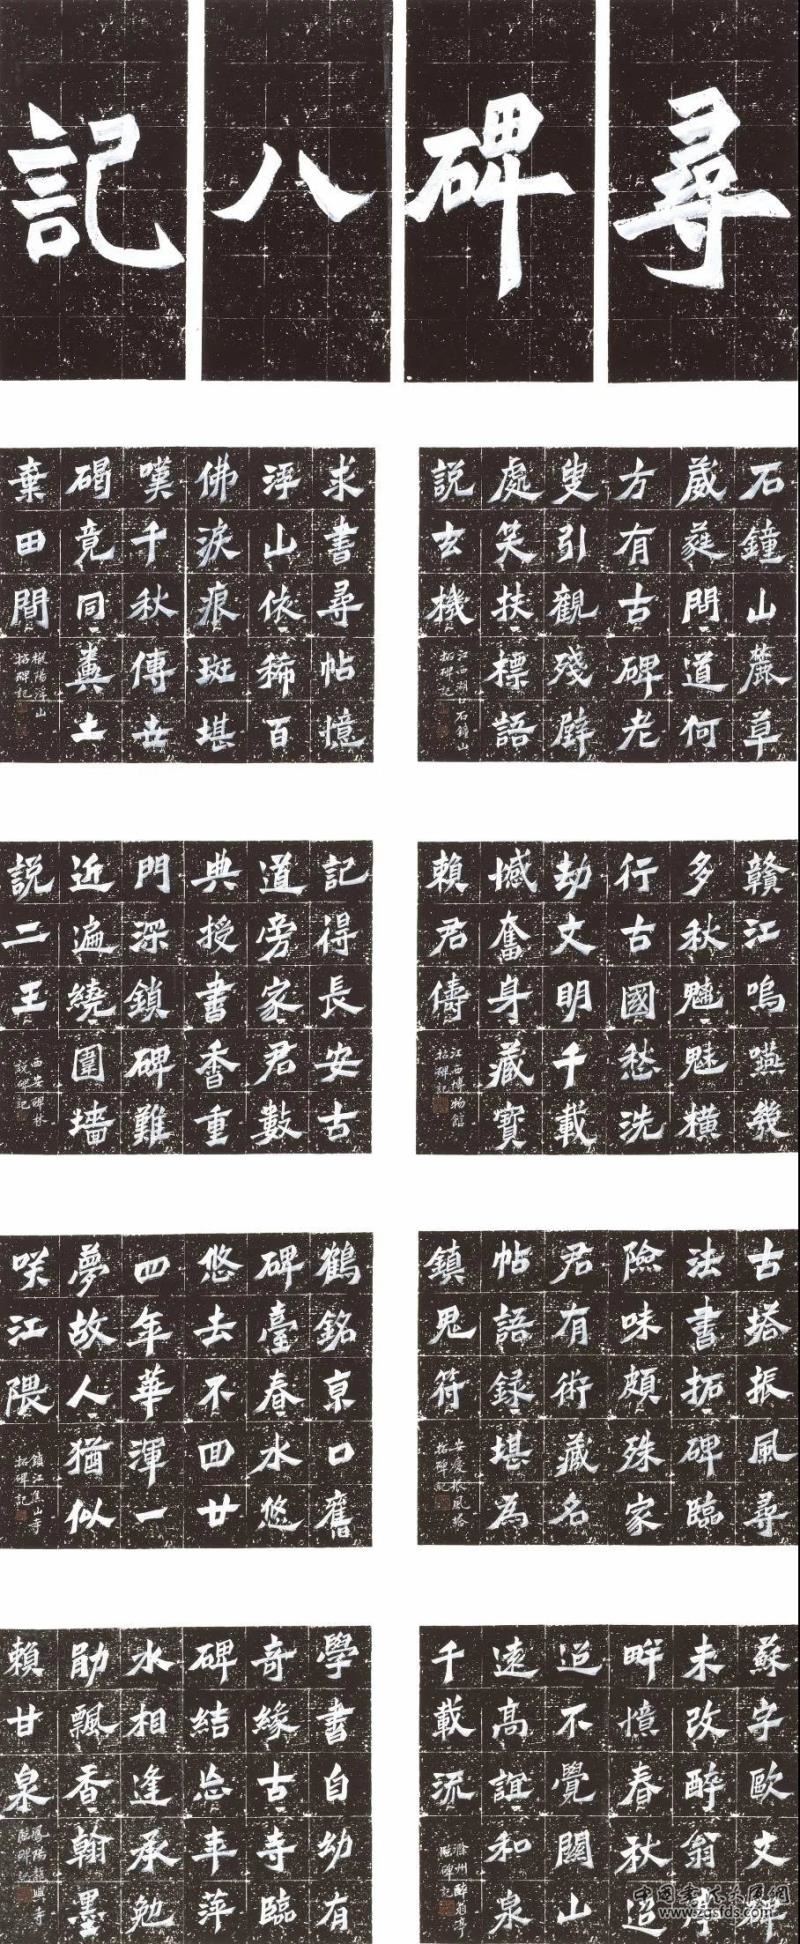 尋碑八記
石鐘山麓草
葳蕤問道何
方有古碑老
叟引觀殘壁
處笑扶標語
説玄機
江西湖口石鐘山
拓碑記
求書尋帖憶
浮山依稀百
佛淚痕斑堪
嘆千秋傳世
碣竟同糞土
棄田間
樅陽浮山
拓碑記
贛江嗚嚥幾
多秋魑魅橫
行古國愁洗
劫文明千載
憾奮身藏寶
賴君儔
江西博物館
拓碑記
記得長安古
道旁家君數
典授書香重
門深鎖碑難
近遍繞圍墻
説二王
西安碑林
訪碑記
古塔振風尋
法書拓碑臨
險味頗殊家
君有術藏名
帖語録堪為
鎮鬼符
安慶振風塔
拓碑記
鶴銘京口舊
碑臺春水悠
悠去不回廿
四年華渾一
夢故人猶似
咲江隈
鎮江焦山寺
拓碑記
蘇字歐文
未改醉翁亭
畔憶春秋迢
迢不覺關山
遠高誼和泉
千載流
滁州醉翁亭
臨碑記
學書自幼有
奇緣古寺臨
碑結忘年萍
水相逢承勉
勛飄香翰墨
賴甘泉
鳳陽龍興寺
臨碑記
www.zgsfds.com